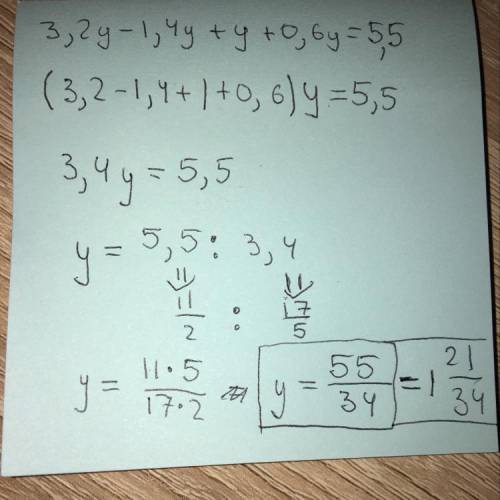 3,2y-1,4y+y+0,6y=5,5
(3,2-1,4+1+0,6)y=5,5
3,4y=5,5
y=5,5:3,4
11/2 : 17/5
y=11·5/17·2 y=55/34 =1 21/34